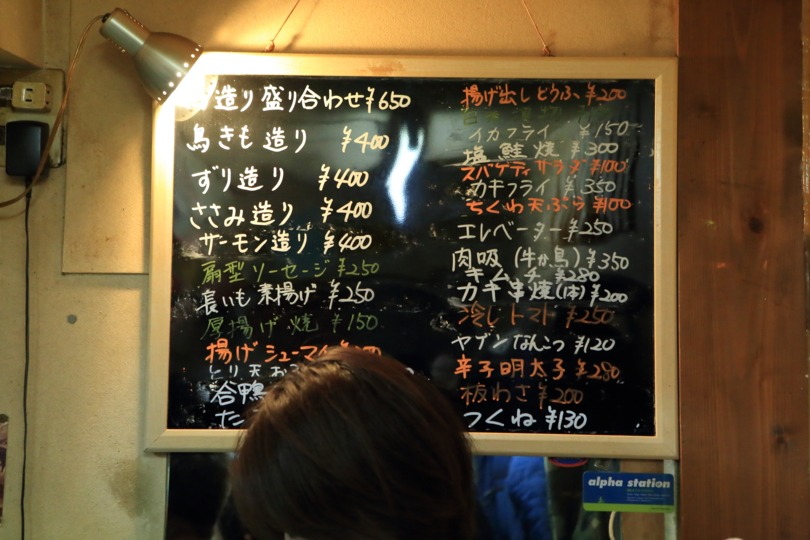 造り盛り合わせ ¥650
鳥きも造り ¥400
ずり造り ¥400
ささみ造り ¥400
サーモン造り ¥400
扇型ソーセージ ¥250
長いも素揚げ ¥250
厚揚げ焼 ¥150
揚げシューマイ
とり天
合鴨
た
揚げ出しとうふ ¥200
イカフライ ¥150
塩鮭焼 ¥300
スパゲティサラダ ¥100
カキフライ ¥350
ちくわ天ぷら ¥100
エレベーター ¥250
肉吸(牛か鳥) ¥350
キムチ ¥280
カキ串煉(1本) ¥200
冷しトマト ¥250
ヤゲンなんこつ ¥120
辛子明太子 ¥280
板わさ ¥200
つくね ¥130
alpha station